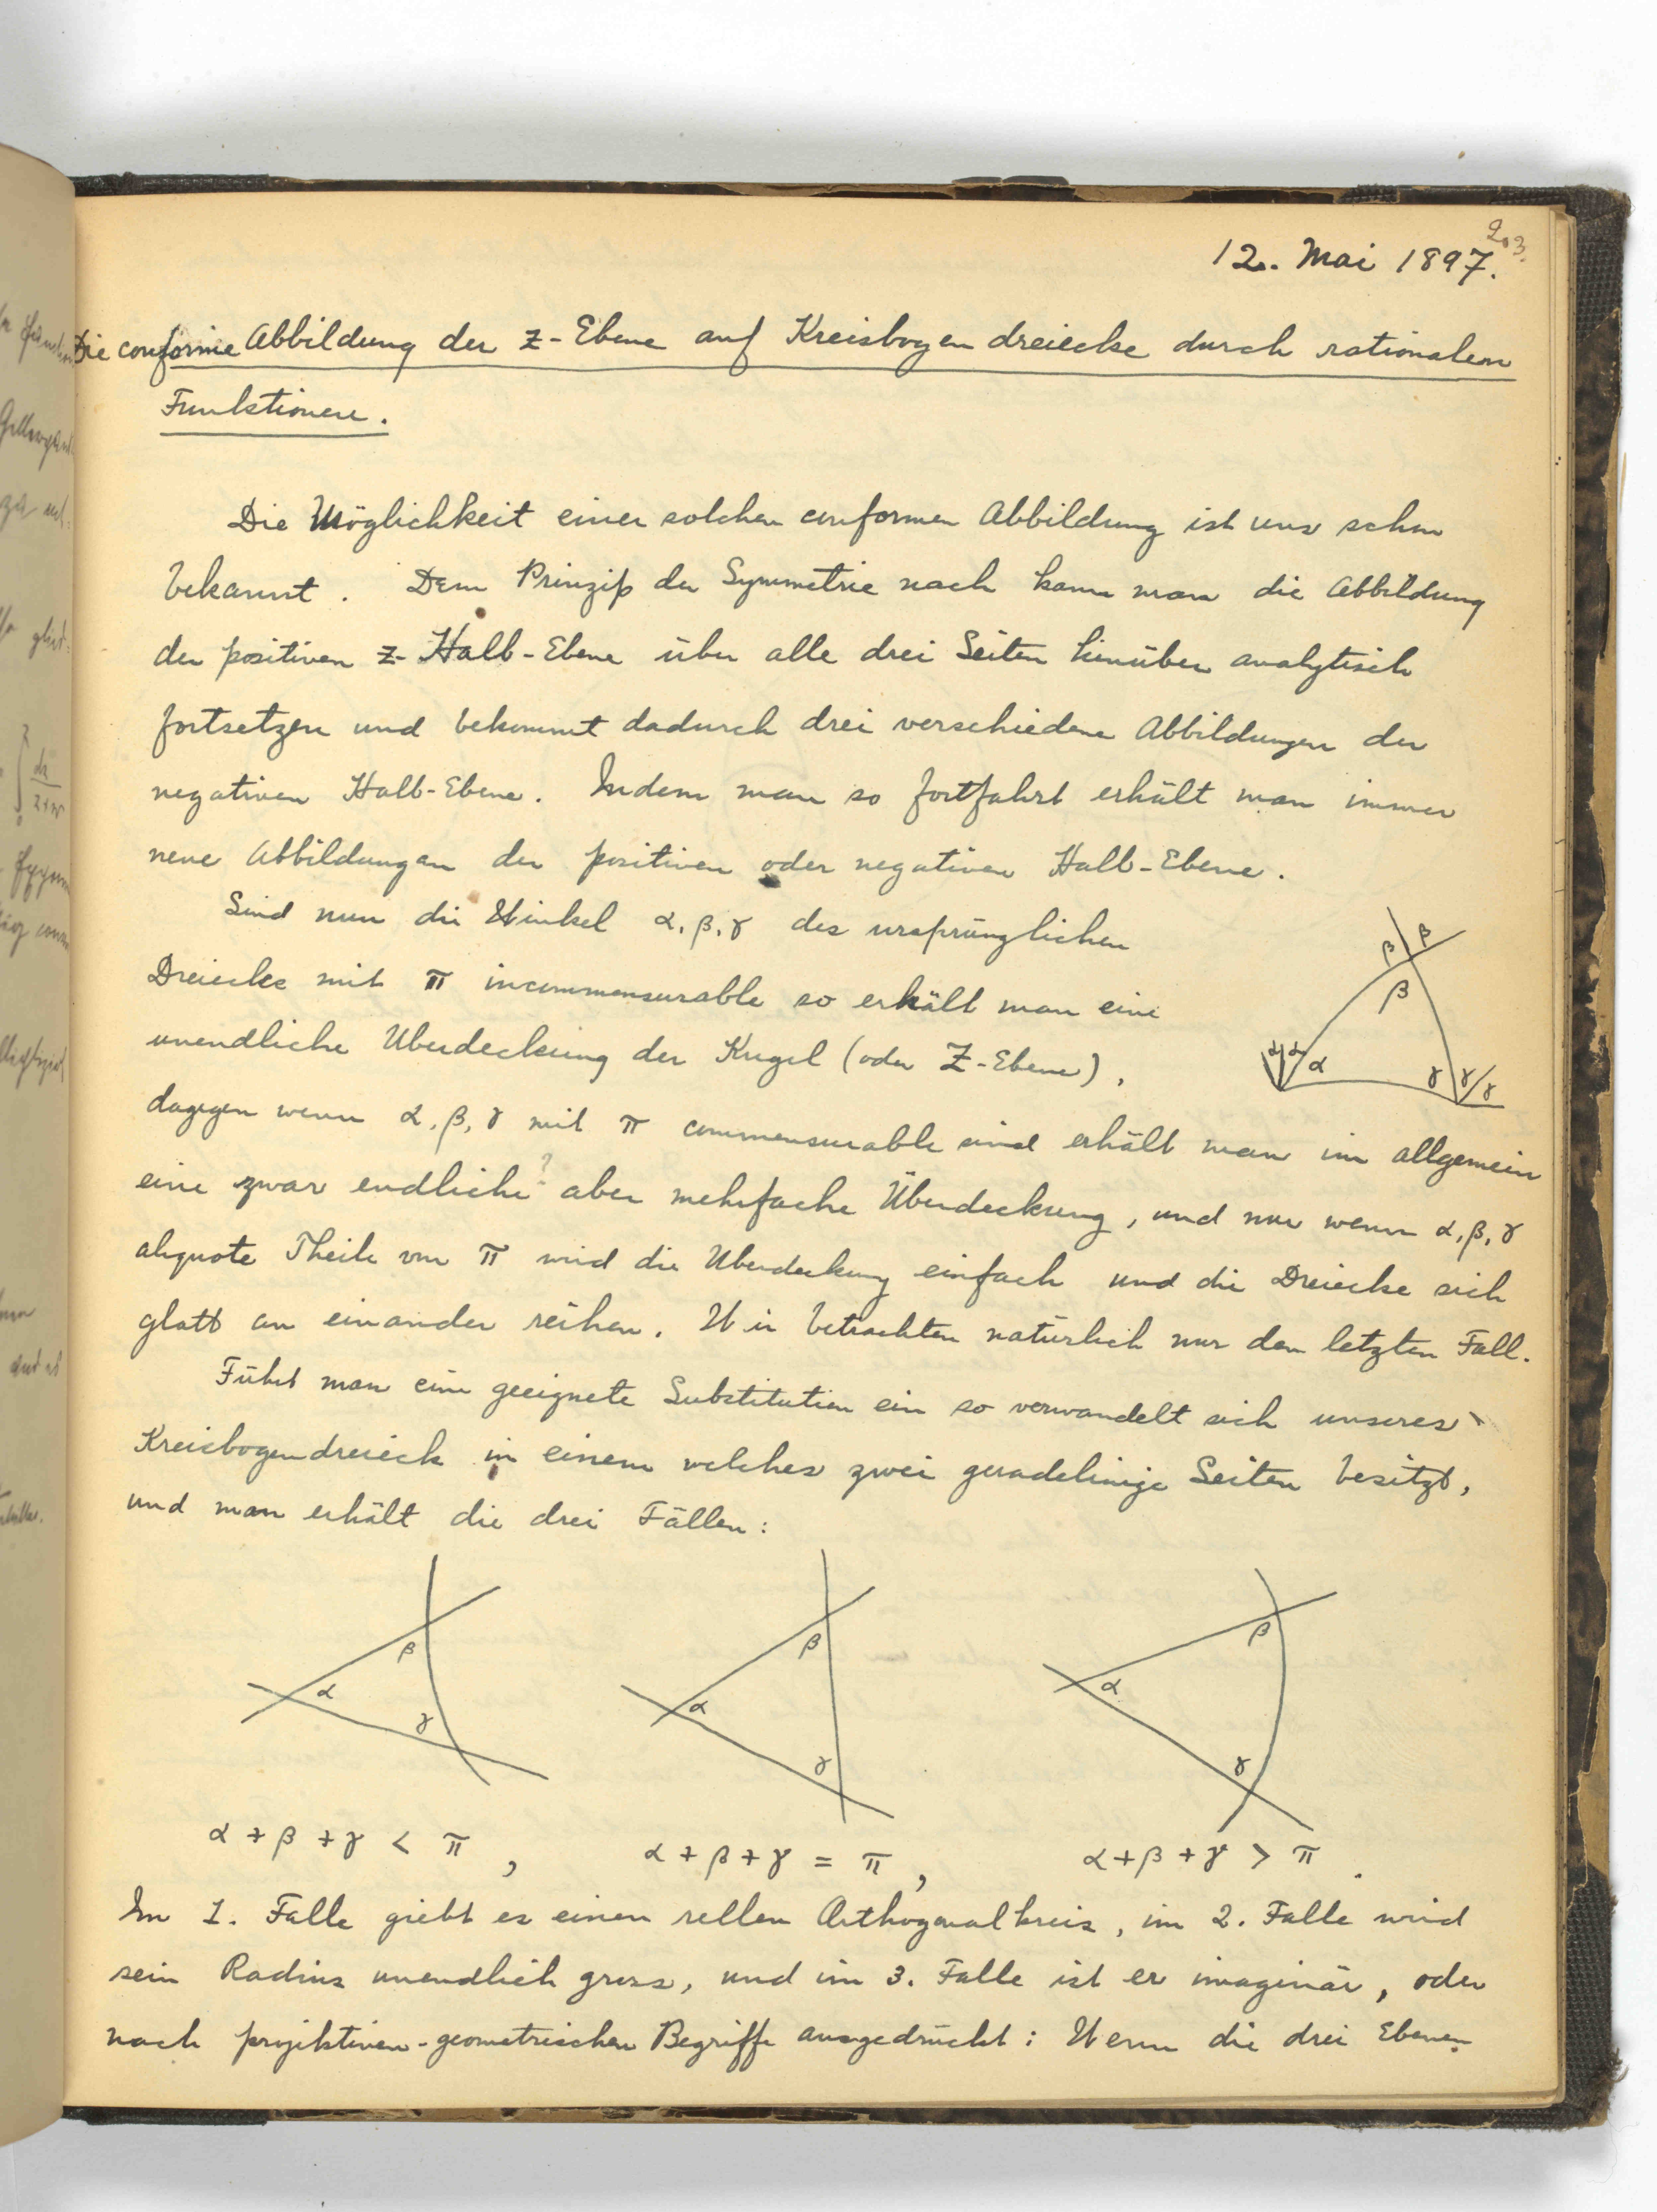 203.
12. Mai 1897.
Die conforme Abbildung der z-Ebene auf Kreisbogendreiecke durch rationalen
Funktionen.
Die Möglichkeit einer solchen conformen Abbildung ist uns schon
bekannt. Dem Prinzip der Symmetrie nach kann man die Abbildung
der positiven z-Halb-Ebene über alle drei Seiten hinüber analytisch
fortsetzen und bekommt dadurch drei verschiedene Abbildungen der
negativen Halb-Ebene. Indem man so fortfahrt erhält man immer
neue Abbildungen der positiven oder negativen Halb-Ebene.
Sind nun die Winkel α, β, γ des ursprünglichen
Dreiecks mit π incommensurable so erhält man eine
unendliche Überdeckung der Kugel (oder Z-Ebene),
dagegen wenn α, β, γ mit π commensurable sind erhält man im allgemein
eine zwar endliche? aber mehrfache Überdeckung, und nur wenn α, β, γ
aliquote Theile von π wird die Überdeckung einfach und die Dreiecke sich
glatt an einander reihen. Wir betrachten natürlich nur den letzten Fall.
Führt man eine geeignete Substitution ein so verwandelt sich unseres
Kreisbogendreieck in einem welches zwei geradelinige Seiten besitzt,
und man erhält die drei Fällen:
β β
β
α α α γ γ γ
β α γ
β α γ
β α γ
α + β + γ < π , α + β + γ = π , α + β + γ > π .
Im 1. Falle giebt es einen rellen Orthogonalkreis, im 2. Falle wird
sein Radius unendlich gross, und im 3. Falle ist er imaginär, oder
nach projektiven-geometrischen Begriffe ausgedrückt: Wenn die drei Ebenen